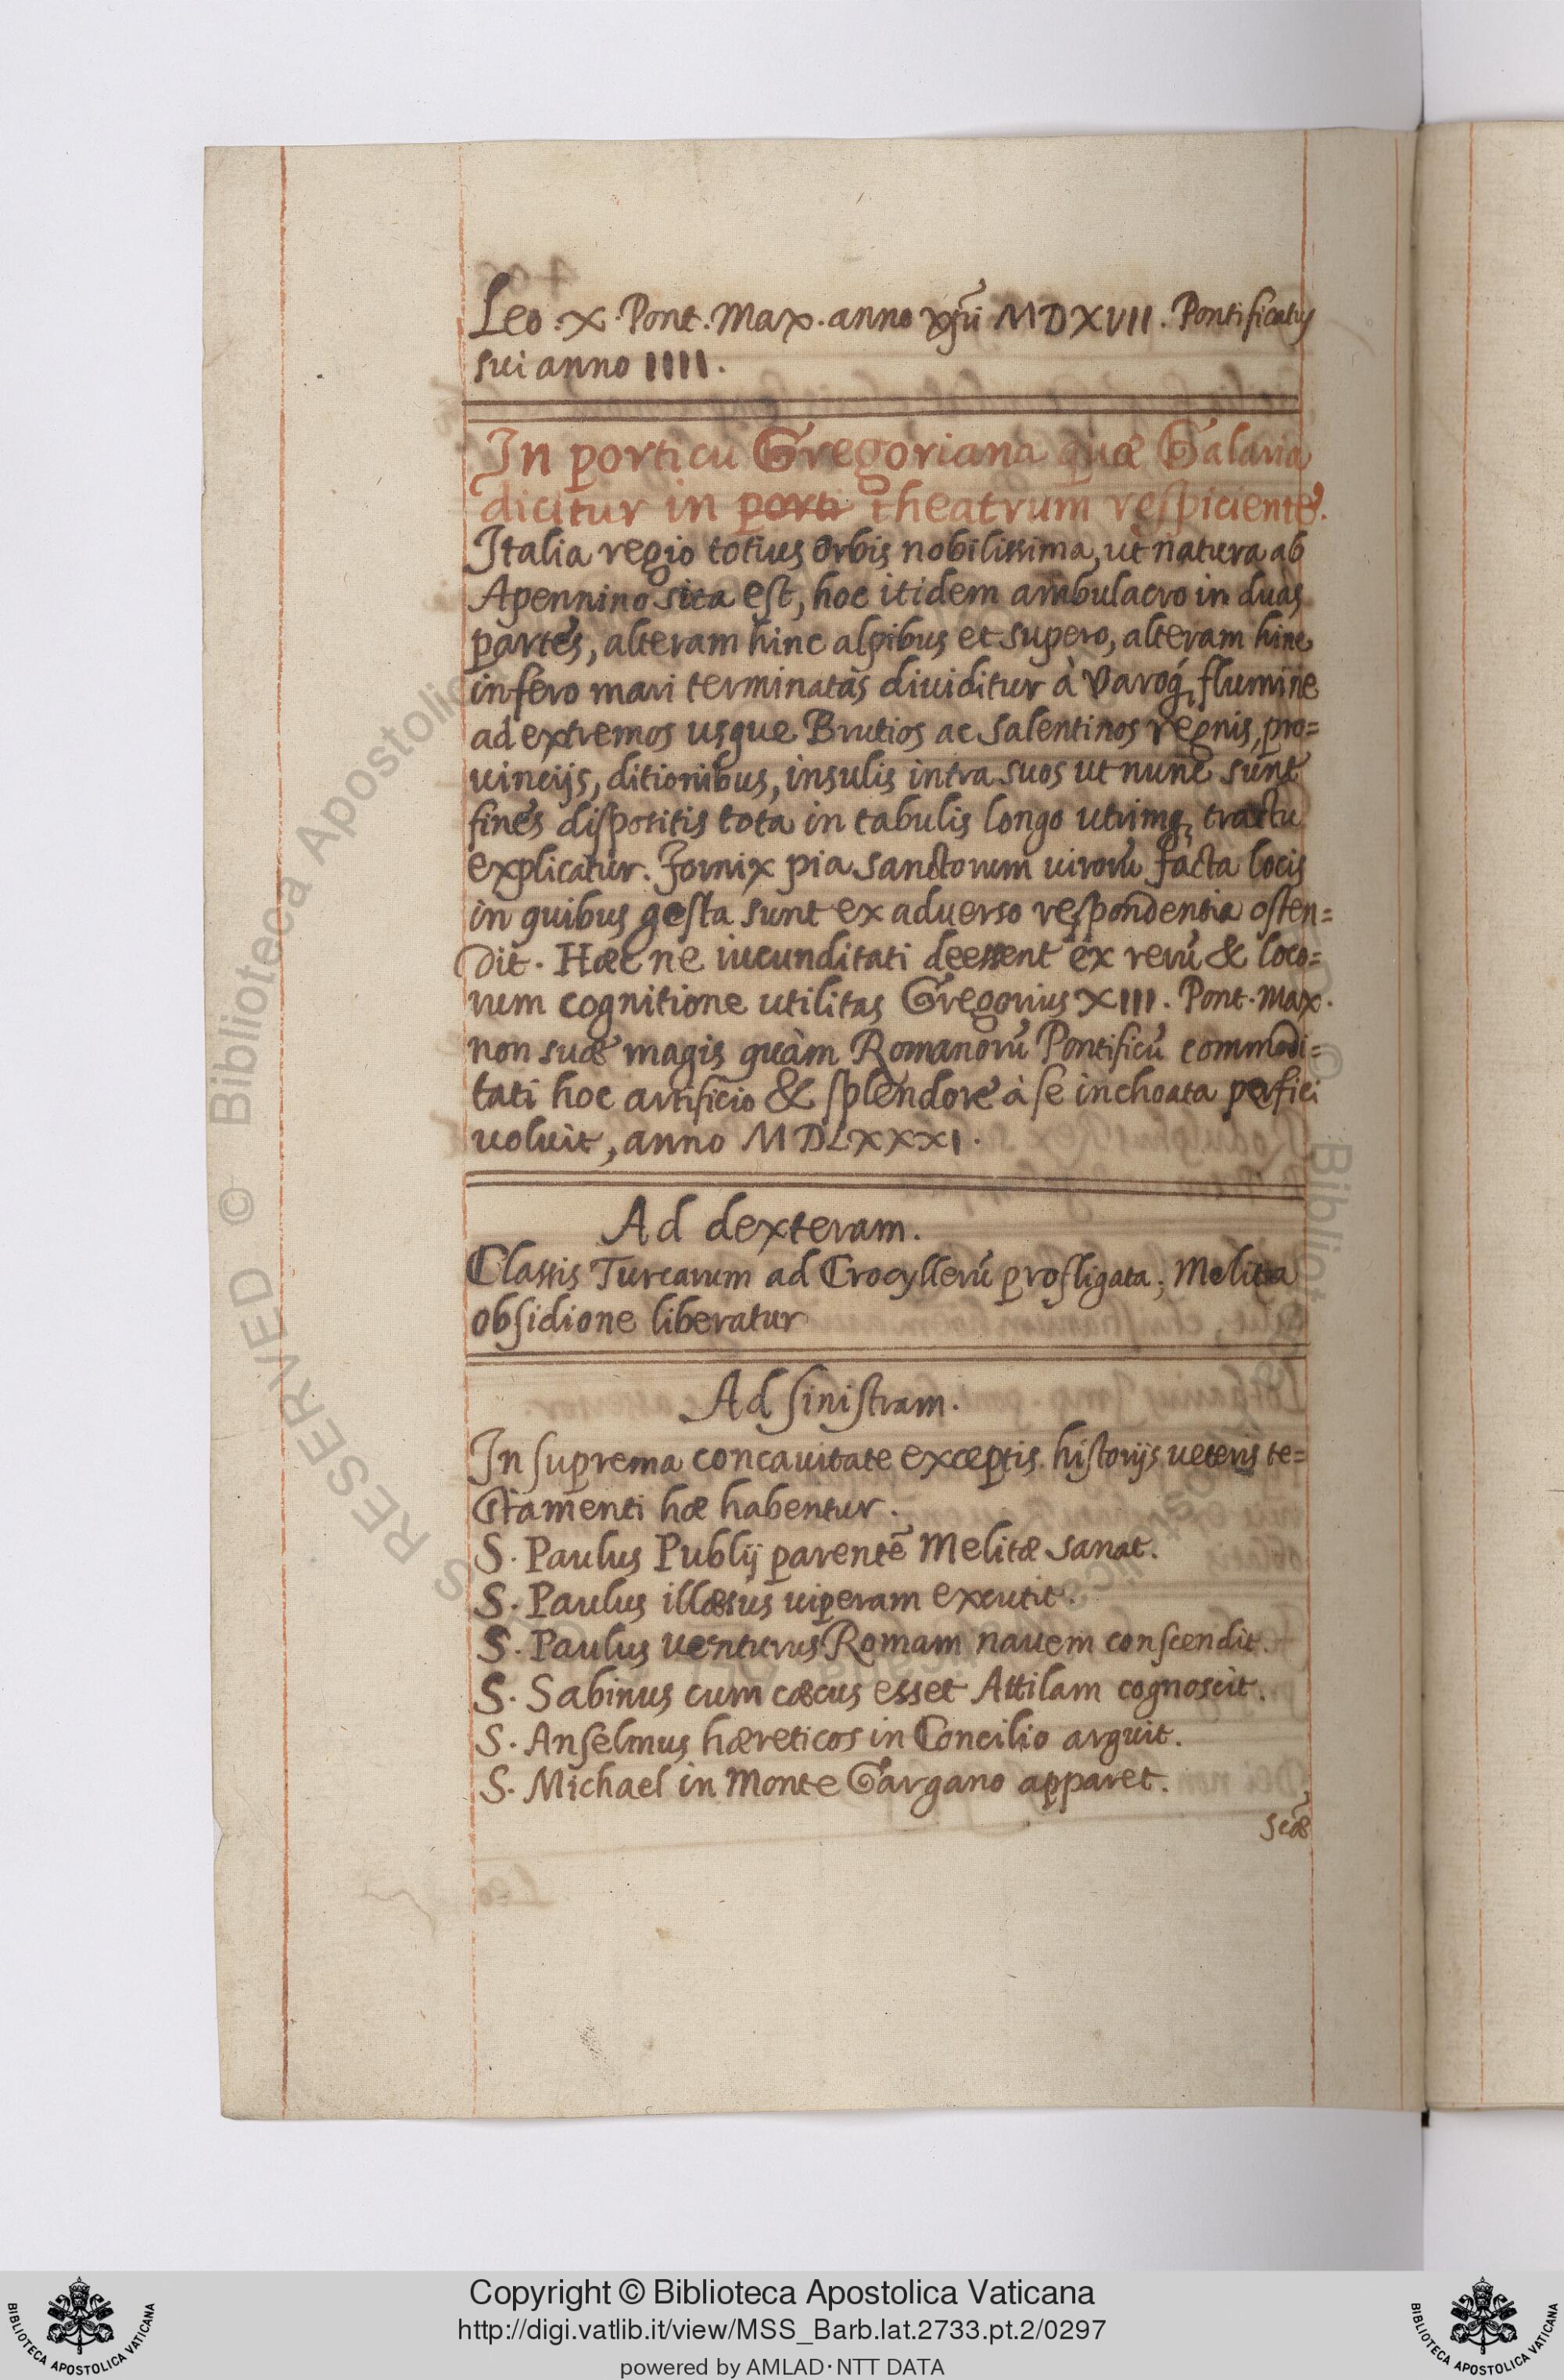 Leo . X . Pont . Max . anno xp̃i MDXVII . Pontificatus
sui anno IIII .
In porticu Gregoriana quæ Galaria
dicitur in porti theatrum respiciente .
Italia regio totius orbis nobilissima, ut natura ab
Apennino sita est, hoc itidem ambulacro in duas
partes, alteram hinc alpibus et supero, alteram hinc
infero mari terminatàs diuiditur à Varoq́, flumine
ad extremos usque Brutios ac Salentinos regnis, pro=
uincijs, ditionibus, insulis intra suos ut nunc sunt
fines dispositis tota in tabulis longo utrimq, tractu
explicatur . Fornix pia sanctorum uirorũ facta locis
in quibus gesta sunt ex aduerso respondentia osten=
dit . Hæc ne iucunditati deessent ex rerũ & loco=
rum cognitione utilitas Gregorius XIII . Pont . Max .
non suæ magis quàm Romanorũ Pontificũ commodi=
tati hoc artificio & splendore à se inchoata perfici
uoluit, anno MDLXXXI .
Ad dexteram .
Classis Turcarum ad Crocyllerũ profligata ; Melita
obsidione liberatur
Ad sinistram .
In suprema concauitate exceptis historijs ueteris te=
stamenti hæ habentur .
S . Paulus Publij parentẽ Melitæ sanat .
S . Paulus illæsus uiperam excutit .
S . Paulus uenturus Romam nauem conscendit .
S . Sabinus cum cæcus esset Attilam cognoscit .
S . Anselmus hæreticos in Concilio arguit .
S . Michael in Monte Gargano apparet .
Copyright © Biblioteca Apostolica Vaticana
http://digi.vatlib.it/view/MSS_Barb.lat.2733.pt.2/0297
powered by AMLAD·NTT DATA
BIBLIOTECA APOSTOLICA VATICANA
BIBLIOTECA APOSTOLICA VATICANA